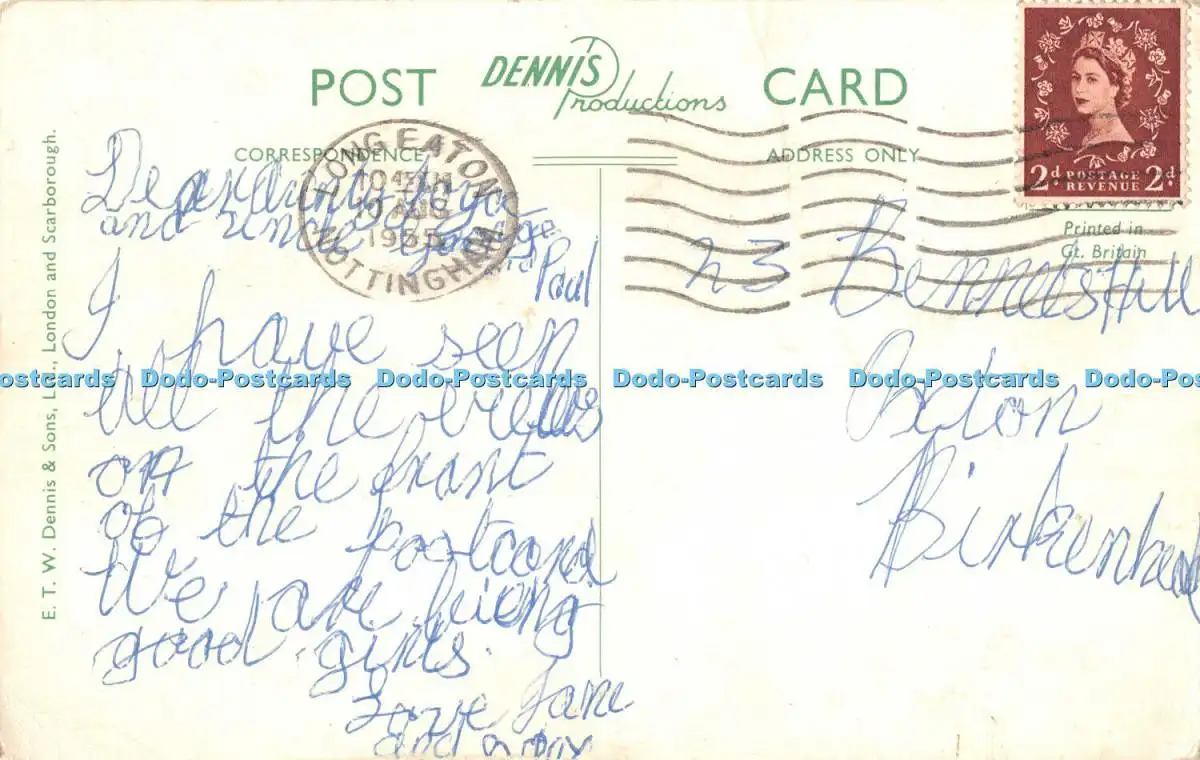 POST DENNIS Productions CARD
CORRESPONDENCE
ADDRESS ONLY
2d POSTAGE REVENUE 2d
Printed in
Gt. Britain
LONG EATON
10 AUG
NOTTINGHAM
E. T. W. Dennis & Sons, London and Scarborough.
Dear
and George
and Paul
I have seen
all the views
on the front
of the postcard
We are being
good girls.
Love Jane
and
23 Hill
Oxton
Birkenhead
Dodo-Postcards Dodo-Postcards Dodo-Postcards Dodo-Postcards Dodo-Postcards